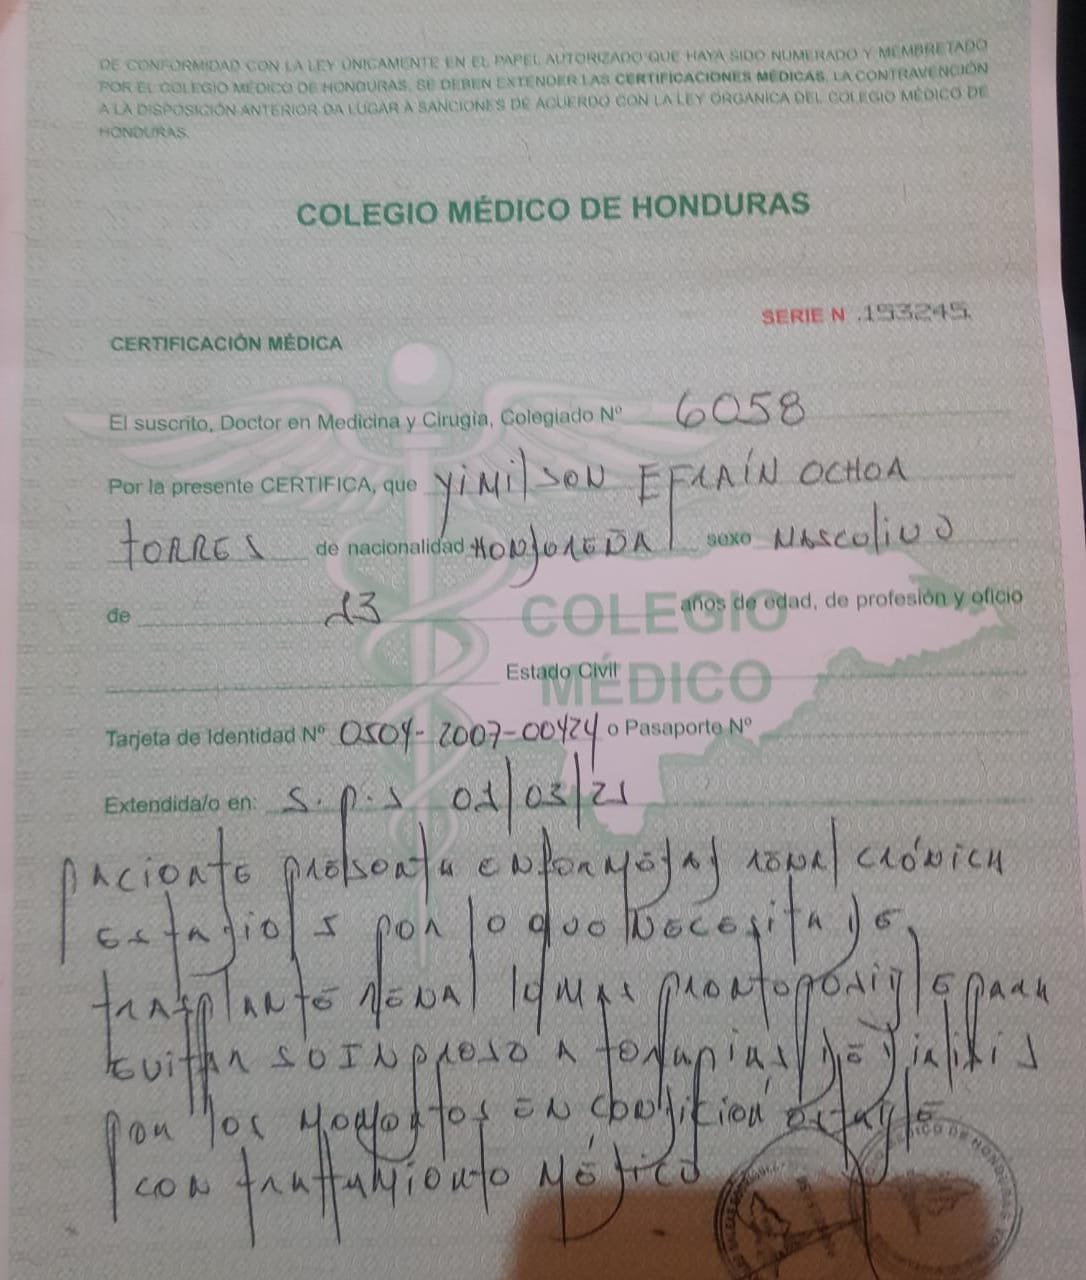 DE CONFORMIDAD CON LA LEY ÚNICAMENTE EN EL PAPEL AUTORIZADO QUE HAYA SIDO NUMERADO Y MEMBRETADO
POR EL COLEGIO MÉDICO DE HONDURAS, SE DEBEN EXTENDER LAS CERTIFICACIONES MÉDICAS, LA CONTRAVENCIÓN
A LA DISPOSICIÓN ANTERIOR DA LUGAR A SANCIONES DE ACUERDO CON LA LEY ORGÁNICA DEL COLEGIO MÉDICO DE
HONDURAS.
COLEGIO MÉDICO DE HONDURAS
SERIE N .153245
CERTIFICACIÓN MÉDICA
El suscrito, Doctor en Medicina y Cirugía, Colegiado Nº 6058
Por la presente CERTIFICA, que Yimilson EFRAÍN OCHOA
TORRES de nacionalidad HONDUREÑA sexo MASCULINO
de 13 años de edad, de profesión y oficio
COLEGIO
Estado Civil
MÉDICO
Tarjeta de Identidad Nº 0504-2007-00424 o Pasaporte Nº
Extendida/o en: S.P.S 01/03/21
paciente presenta enfermedad renal crónica
estadio 5 por lo que necesita de
trasplante renal lo mas pronto posible para
evitar su ingreso a terapias de dialisis
por los momentos en condición estable
con tratamiento médico